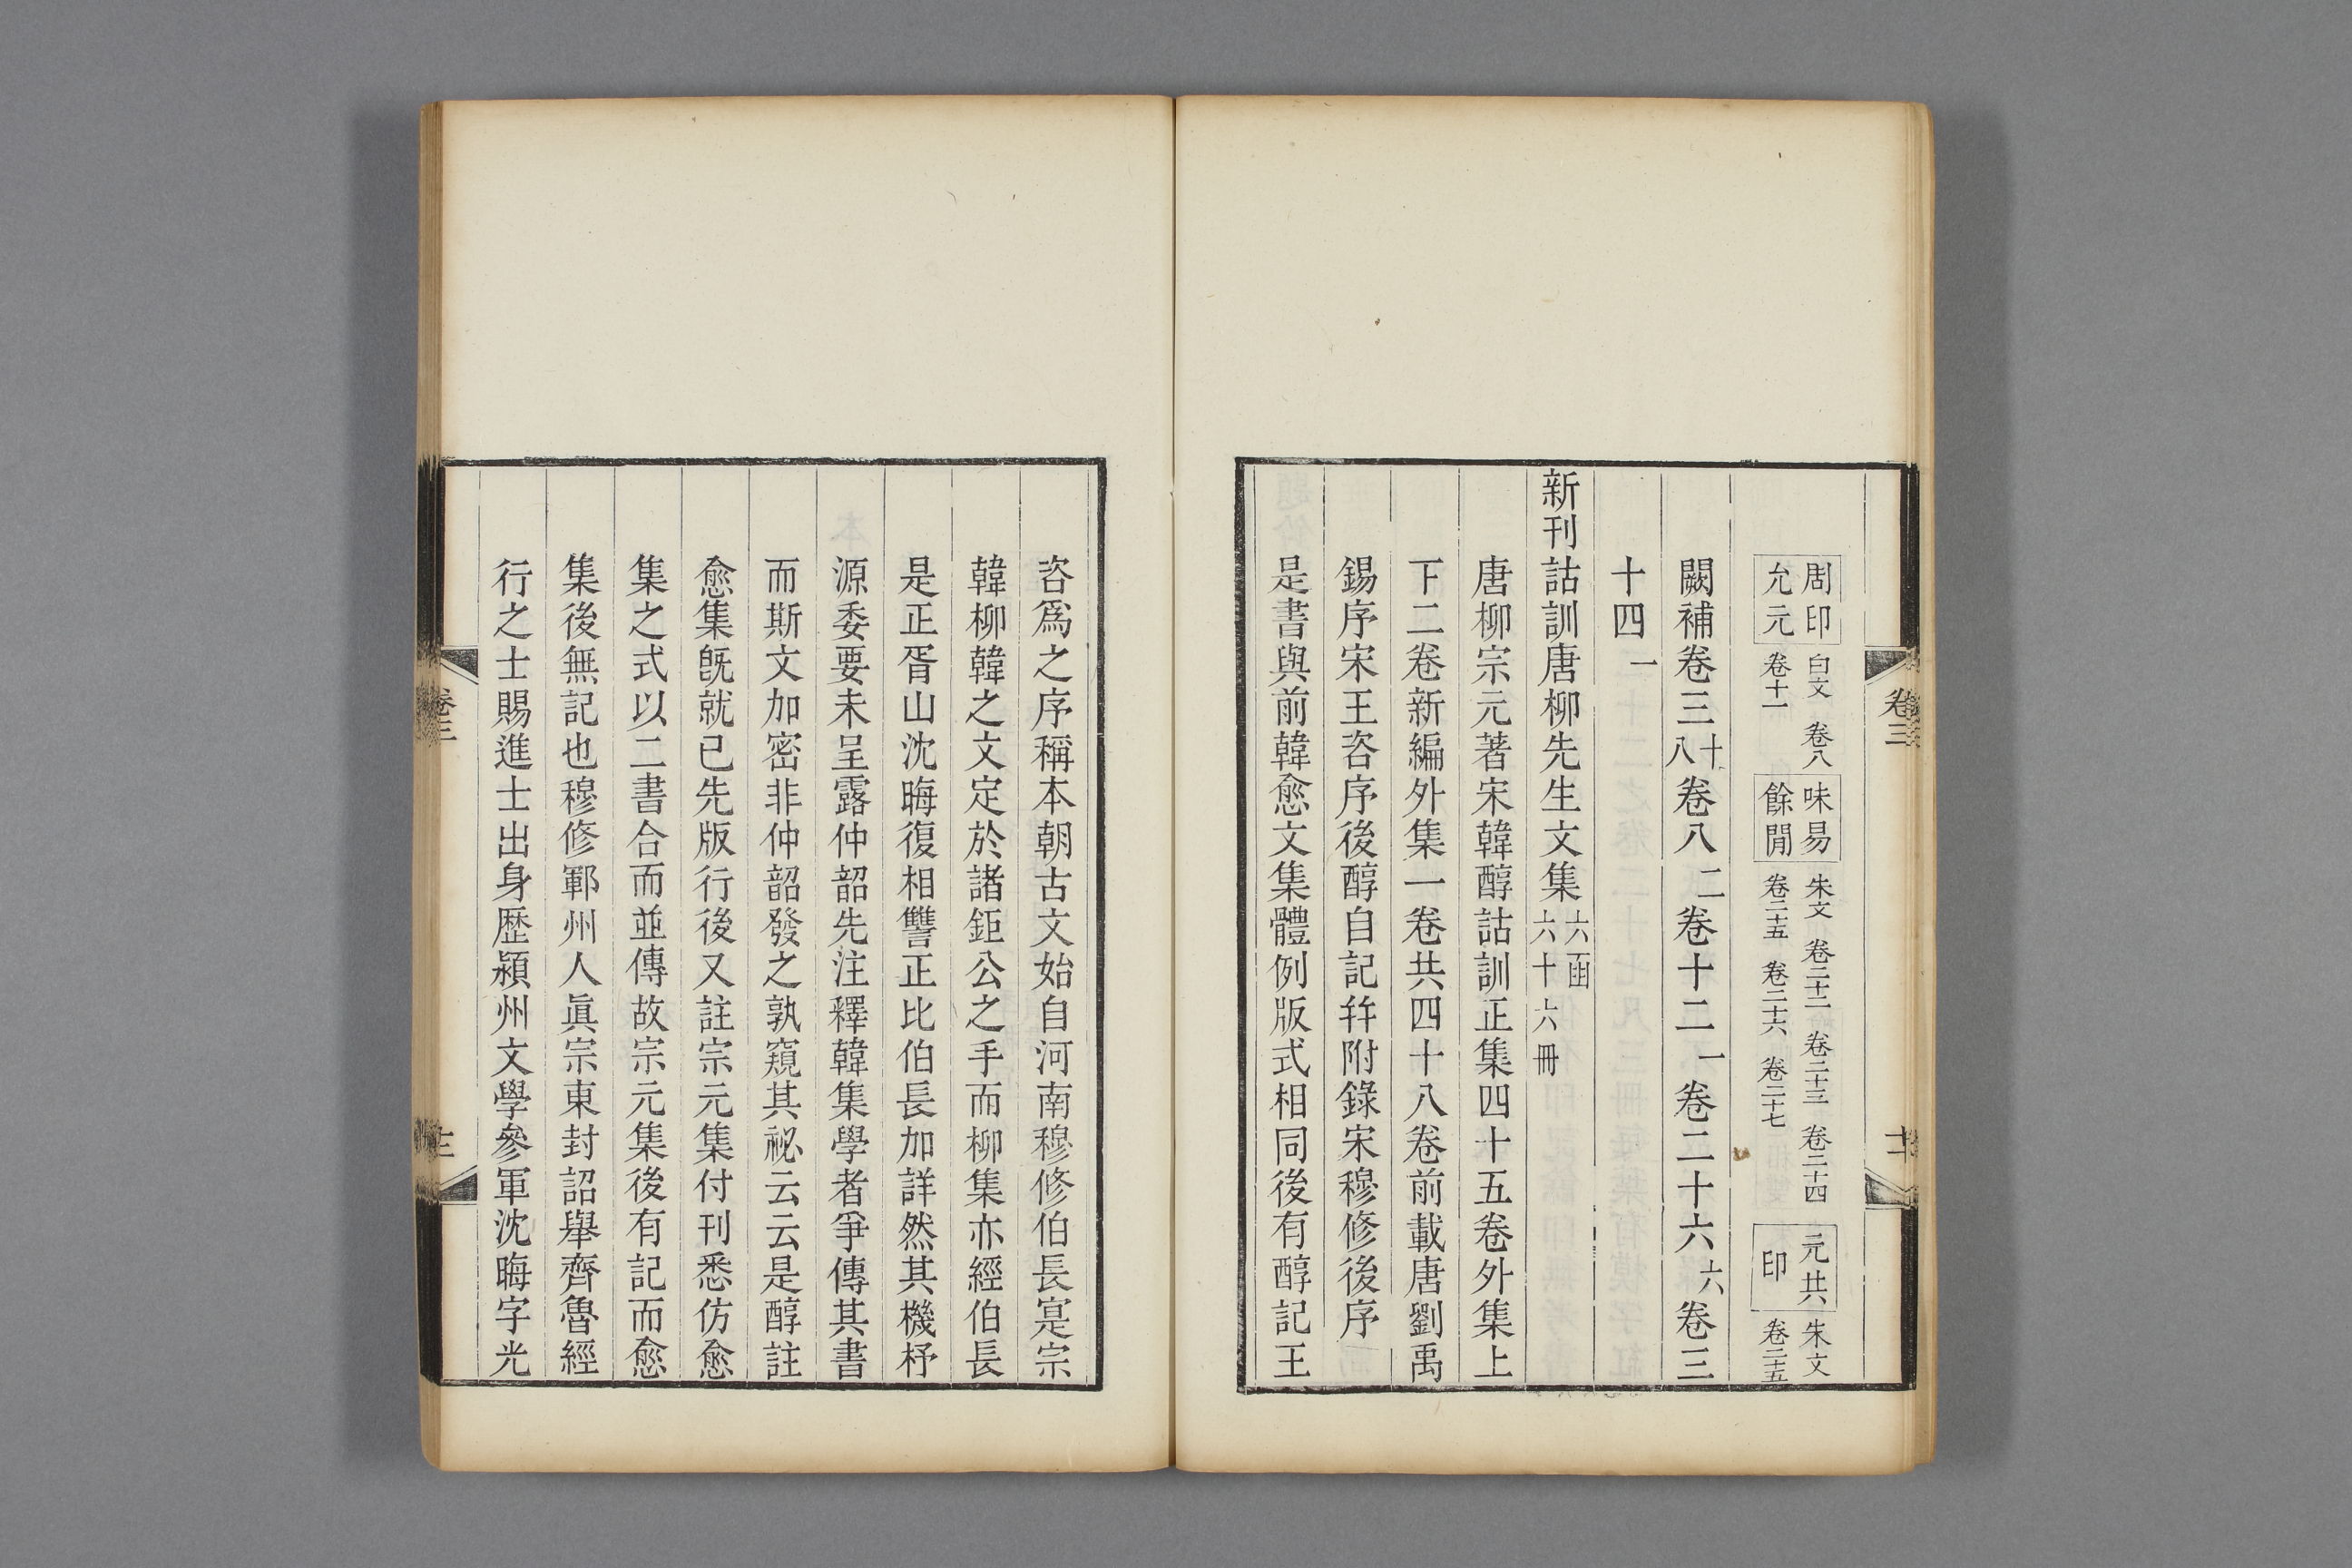 周印允元 白文 卷八 卷十一 味易餘閒 朱文 卷二十二 卷二十三 卷二十四 卷二十五 卷二十六 卷二十七 元共印 朱文 卷二十五
闕補卷三十八卷八二卷十二一卷二十六六卷三
十四一
新刊詁訓唐柳先生文集六函六十六冊
唐柳宗元著宋韓醇詁訓正集四十五卷外集上
下二卷新編外集一卷共四十八卷前載唐劉禹
錫序宋王咨序後醇自記幷附錄宋穆修後序
是書與前韓愈文集體例版式相同後有醇記王
卷三
咨爲之序稱本朝古文始自河南穆修伯長寔宗
韓柳韓之文定於諸鉅公之手而柳集亦經伯長
是正胥山沈晦復相讐正比伯長加詳然其機杼
源委要未呈露仲韶先注釋韓集學者爭傳其書
而斯文加密非仲韶發之孰窺其祕云云是醇註
愈集旣就已先版行後又註宗元集付刊悉仿愈
集之式以二書合而並傳故宗元集後有記而愈
集後無記也穆修鄆州人眞宗東封詔舉齊魯經
行之士賜進士出身歷潁州文學參軍沈晦字光
卷三